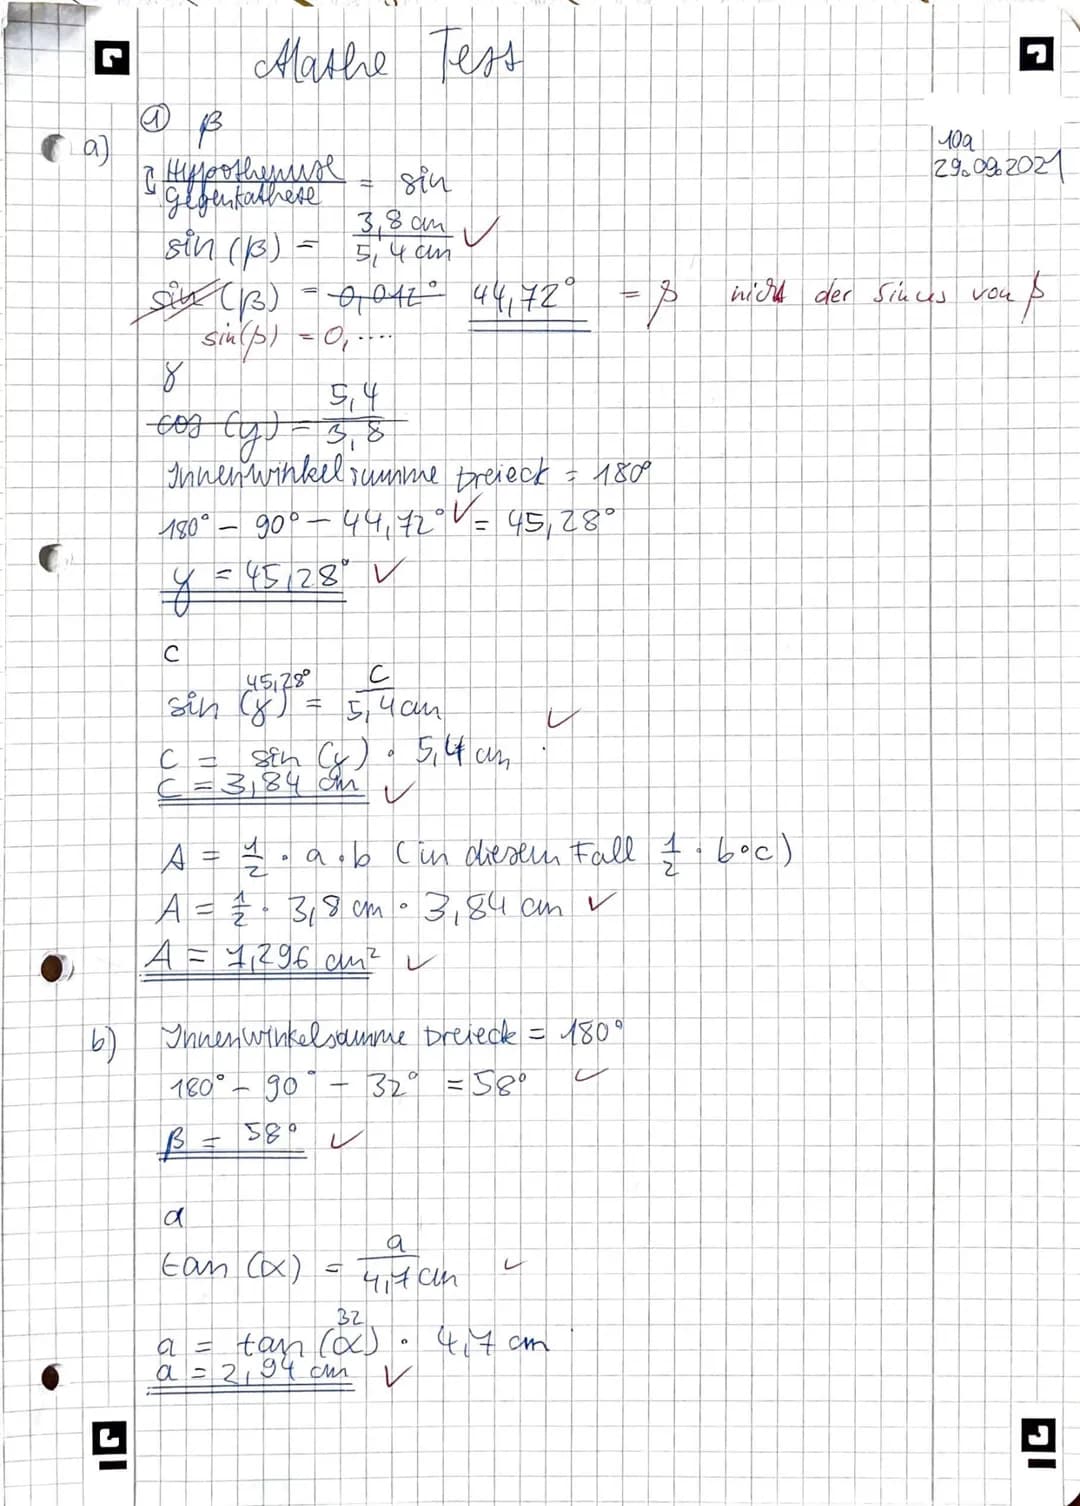 Mathe Test
① β
10a
29.09.2021
a)
Hypothenuse / Gegenkathete = sin
sin (β) = 3,8 cm / 5,4 cm ✓
sin (β) = 0,012° 44,72° = β nicht der Sinus von β
sin(β) = 0,....
γ
cos (y) = 5,4 / 3,8
Innenwinkelsumme Dreieck = 180°
180° - 90° - 44,72° ✓ = 45,28°
y = 45,28° ✓
c
45,28°
sin (γ) = c / 5,4 cm ✓
c = sin (γ) · 5,4 cm
c = 3,84 cm ✓
A = 1/2 · a · b (in diesem Fall 1/2 · b · c)
A = 1/2 · 3,8 cm · 3,84 cm ✓
A = 7,296 cm² ✓
b) Innenwinkelsumme Dreieck = 180°
180° - 90° - 32° = 58° ✓
β = 58° ✓
a
tan (α) = a / 4,7 cm ✓
32
a = tan (α) · 4,7 cm
a = 2,94 cm ✓